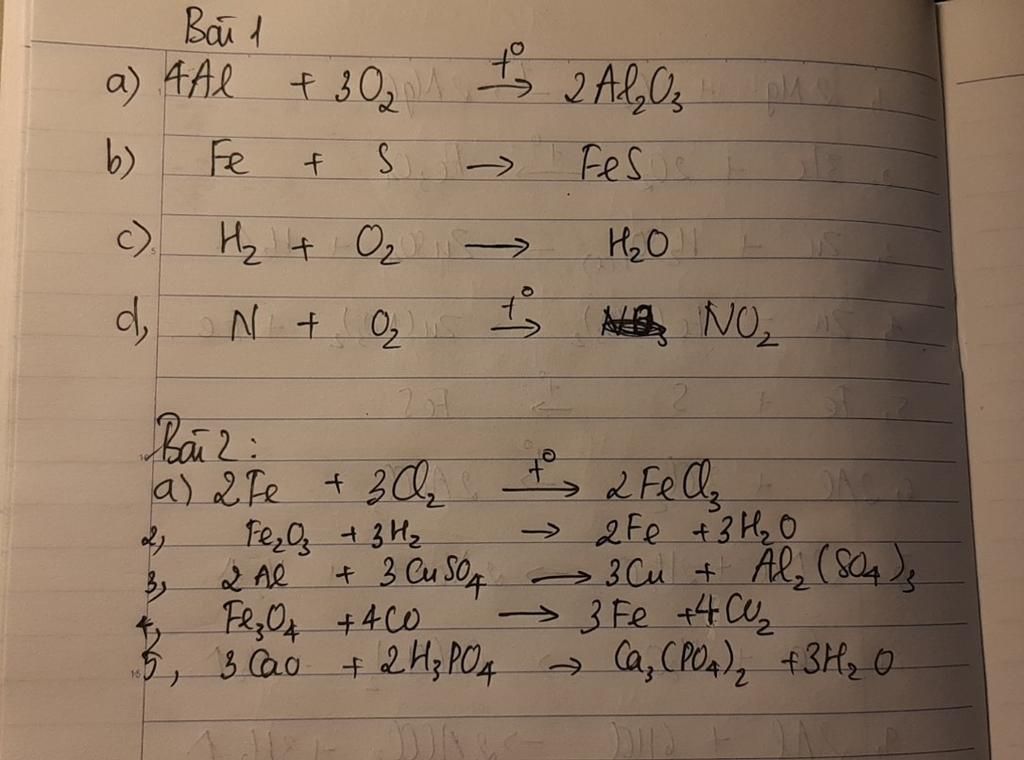 Bài 1
a) 4Al + 3O₂ →t° 2Al₂O₃
b) Fe + S → FeS
c) H₂ + O₂ → H₂O
d, N + O₂ →t° NO₂
Bài 2:
a) 2Fe + 3Cl₂ →t° 2FeCl₃
2, Fe₂O₃ + 3H₂ → 2Fe + 3H₂O
3, 2Al + 3CuSO₄ → 3Cu + Al₂(SO₄)₃
4, Fe₃O₄ + 4CO → 3Fe + 4CO₂
5, 3CaO + 2H₃PO₄ → Ca₃(PO₄)₂ + 3H₂O